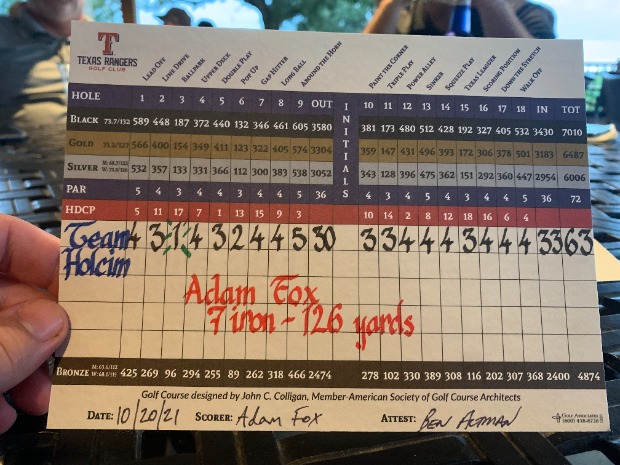 T
TEXAS RANGERS
GOLF CLUB
LEAD OFF LINE DRIVE BALLPARK UPPER DECK DOUBLE PLAY POP UP GAP HITTER LONG BALL AROUND THE HORN PAINT THE CORNER TRIPLE PLAY POWER ALLEY SINKER SQUEEZE PLAY TEXAS LEAGUER SCORING POSITION DOWN THE STRETCH WALK OFF
HOLE 1 2 3 4 5 6 7 8 9 OUT INITIALS 10 11 12 13 14 15 16 17 18 IN TOT
BLACK 73.7/132 589 448 187 372 440 132 346 461 605 3580 381 173 480 512 428 192 327 405 532 3430 7010
GOLD 566 400 154 349 411 123 322 405 574 3304 359 147 431 496 393 172 306 378 501 3183 6487
SILVER 532 357 133 331 366 112 300 383 538 3052 343 128 396 475 362 151 292 360 447 2954 6006
PAR 5 4 3 4 4 3 4 4 5 36 4 3 4 5 4 3 4 4 5 36 72
HDCP 5 11 17 7 1 13 15 9 3 10 14 2 8 12 18 16 6 4
Team 4 3 1 4 3 2 4 4 5 30 3 3 4 4 4 3 4 4 4 33 63
Holcim
Adam Fox
7 iron - 126 yards
BRONZE 425 269 96 294 255 89 262 318 466 2474 278 102 330 389 308 116 202 307 368 2400 4874
Golf Course designed by John C. Colligan, Member-American Society of Golf Course Architects
DATE: 10/20/21 SCORER: Adam Fox ATTEST: BEN ALTMAN
GOLF ASSOCIATES